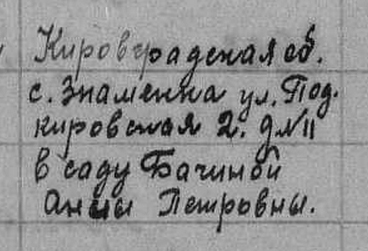 Кировградская об.
с. Знаменка ул. Под.
кировская 2. д № 11
в саду Бачиной
Анны Петровны.